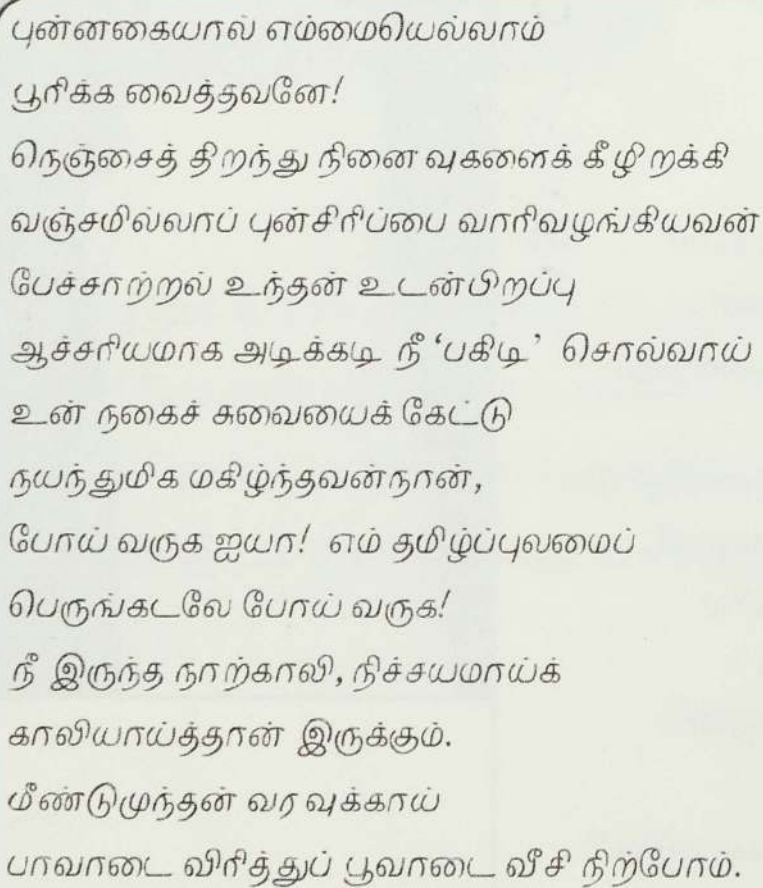 புன்னகையால் எம்மையெல்லாம்
பூரிக்க வைத்தவனே!
நெஞ்சைத் திறந்து நினைவுகளைக் கீழிறக்கி
வஞ்சமில்லாப் புன்சிரிப்பை வாரிவழங்கியவன்
பேச்சாற்றல் உந்தன் உடன்பிறப்பு
ஆச்சரியமாக அடிக்கடி நீ ‘பகிடி’ சொல்வாய்
உன் நகைச் சுவையைக் கேட்டு
நயந்துமிக மகிழ்ந்தவன்நான்,
போய் வருக ஐயா! எம் தமிழ்ப்புலமைப்
பெருங்கடலே போய் வருக!
நீ இருந்த நாற்காலி, நிச்சயமாய்க்
காலியாய்த்தான் இருக்கும்.
மீண்டுமுந்தன் வரவுக்காய்
பாவாடை விரித்துப் பூவாடை வீசி நிற்போம்.